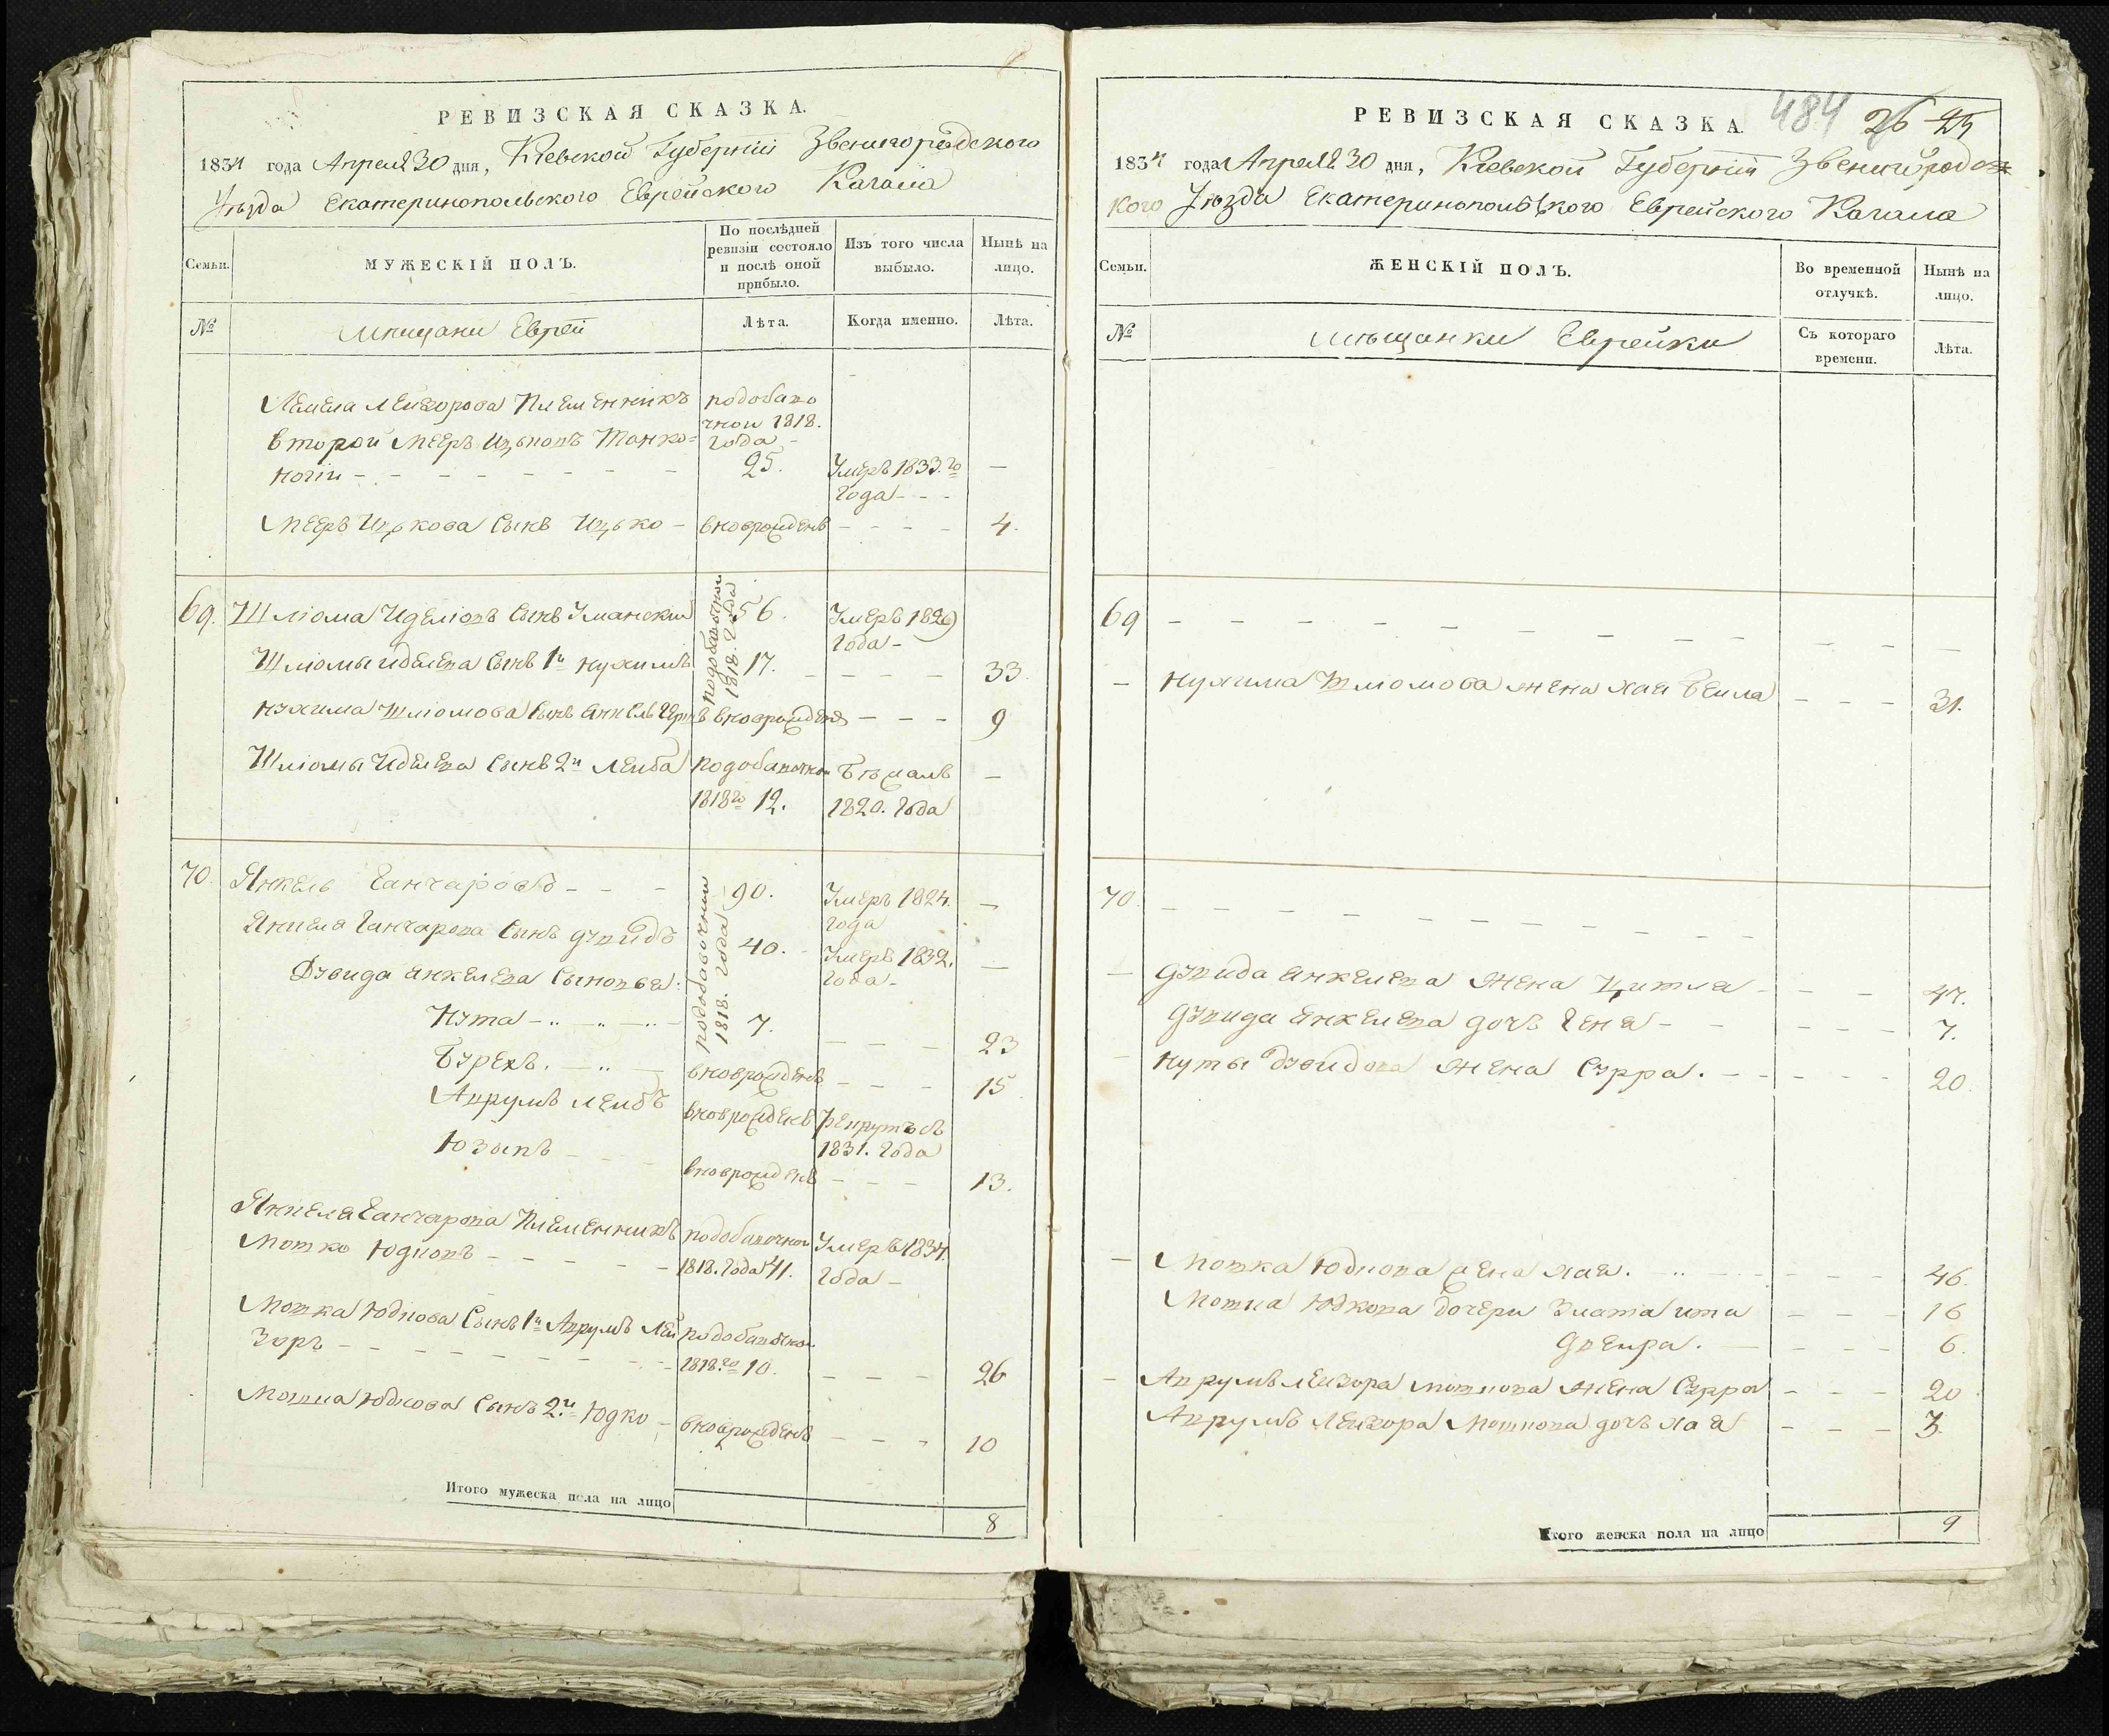 РЕВИЗСКАЯ СКАЗКА.
1834 года Апреля 30 дня, Кіевской Губерніи Звенигородского
Уѣзда Екатеринопольского Еврейского Кагала
Семьи.
МУЖЕСКІЙ ПОЛЪ.
По послѣдней
ревизіи состояло
и послѣ оной
прибыло.
Изъ того числа
выбыло.
Нынѣ на
лицо.
№
Мѣщани Евреи
Лѣта.
Когда именно.
Лѣта.
Лемела Лейзорова Племенникъ
подобаво
чной 1818.
второй Мееръ Ицковъ Тонко=
года
ногій
25.
Умеръ 1833.го
года
Мееръ Ицкова Сынъ Ицько
вноврожденъ
4.
69.
Шліома Иделіовъ Сынъ Уманскій
подобавочной
1818. года
56.
Умеръ 1829
года
Шліомы Иделева Сынъ 1й Нухимъ
17.
33.
Нухима Шліомова Сынъ Анкель Гершъ
вноврожденъ
9
Шліомы Иделева Сынъ 2й Лейба
подобавочной
1818го 12.
Бѣжалъ
1820. Года
70.
Янкель Ганчаровъ
подобавочній
1818. года
90.
Умеръ 1824.
года
Янкеля Ганчарова Сынъ Дувидъ
40.
Умеръ 1832.
года
Дувида Анкелева Сыновья:
Нута
7.
23
Бурехъ.
вноврожденъ
15
Аврумъ Лейбъ
вноврожденъ
Рекрутъ съ
1831. Года
Юзыпъ
вноврожденъ
13.
Янкеля Ганчарова Племенникъ
Мотко Юдковъ
подобавочной
1818. Года 41.
Умеръ 1834.
Года
Мотка Юдкова Сынъ 1й Аврумъ Лей
зоръ
подобавочной
1818.го 10.
26
Мотка Юдкова Сынъ 2.й Юдко
вноврожденъ
10
Итого мужеска пола на лицо
8
484 26 25
РЕВИЗСКАЯ СКАЗКА.
1834 года Апреля 30 дня, Кіевской Губерніи Звенигородс
кого Уѣзда Екатеринопольского Еврейского Кагала
Семьи.
ЖЕНСКІЙ ПОЛЪ.
Во временной
отлучкѣ.
Нынѣ на
лицо.
№
Мѣщанки Еврейки
Съ котораго
времени.
Лѣта.
69
Нухима Шліомова жена Хая Бейла
31.
70.
Дувида Анкелева Жена Цитля
47.
Дувида Анкелева дочь Геня
7.
Нуты Дувидова Жена Сурра.
20.
Мотка Юдкова жена Хая.
46.
Мотка Юдкова дочери Злата Ита
16
Двейра.
6.
Аврумъ Лейзора Моткова Жена Сурра
20
Аврумъ Лейзора Моткова дочь Хая
3.
Итого женска пола на лицо
9